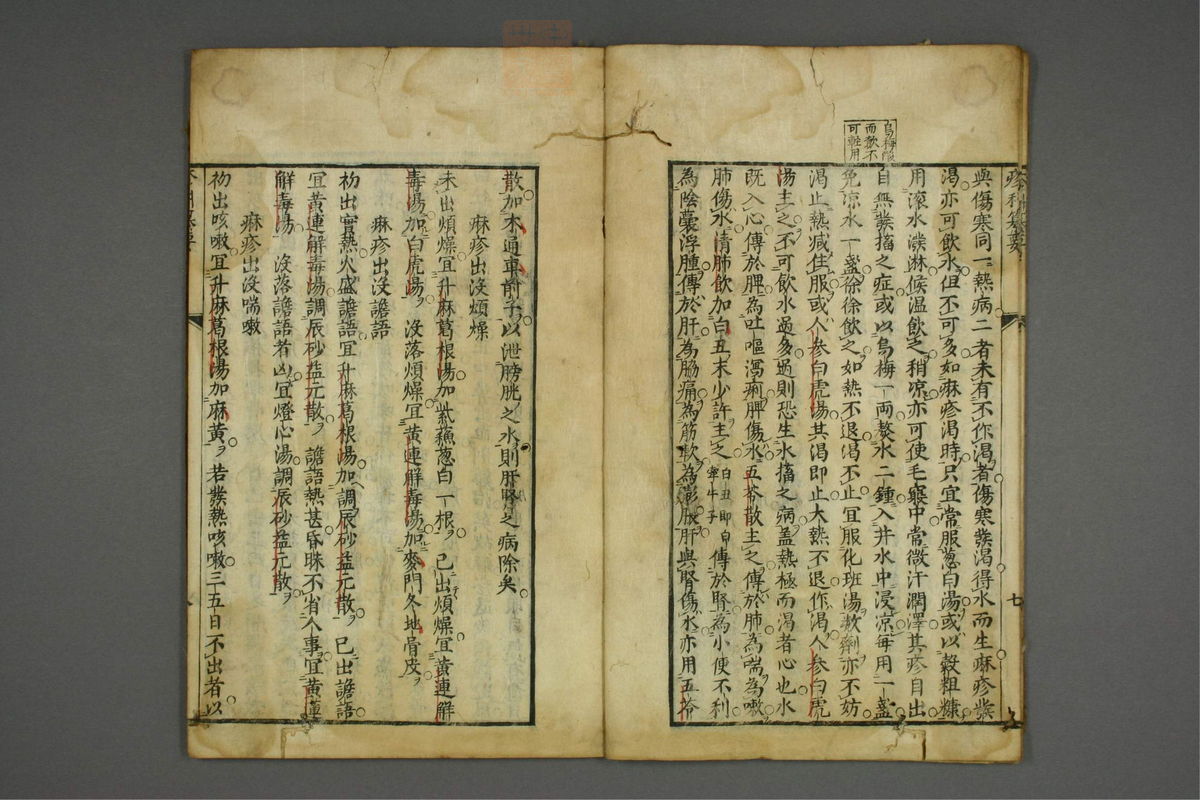 烏梅酸
而歛不
可輕用
與傷寒同一熱病二者未有不作渴者傷寒發渴得水而生麻疹發
渴亦可飲水但不可多如麻疹渴時只宜常服葱白湯或以穀粗糠
用滾水潑淋候温飲之稍凉亦可使毛竅中常微汗潤澤其疹自出
自無發搐之症或以烏梅一両熬水二鍾入井水中浸凉每用一盞
免凉水一盞徐徐飲之如熱不退渴不止宜服化班湯数劑亦不妨
渴止熱减住服或人參白虎湯其渴即止大熱不退作渴人參白虎
湯主之不可飲水過多過則恐生水搐之病盖熱極而渴者心也水
既入心傳於脾為吐嘔瀉痢脾傷水五苓散主之傳於肺為喘為嗽
肺傷水清肺飲加白丑末少許主之白丑即白牽牛子傳於腎為小便不利
為陰囊浮腫傳於肝為脇痛為筋軟為膨脹肝與腎傷水亦用五苓
七
散加木通車前子以泄膀胱之水則肝腎之病除矣
麻疹出没煩燥
未出煩燥宜升麻葛根湯加紫蘓葱白一根已出煩燥宜黄連解
毒湯加白虎湯 没落煩燥宜黄連解毒湯加麥門冬地骨皮
麻疹出没譫語
初出實熱火盛譫語宜升麻葛根湯加調辰砂益元散 已出譫語
宜黄連解毒湯調辰砂益元散 譫語熱甚昏昧不省人事宜黄連
解毒湯 没落譫語者凶宜燈心湯調辰砂益元散
麻疹出没喘嗽
初出咳嗽宜升麻葛根湯加麻黄 若發熱咳嗽三五日不出者以